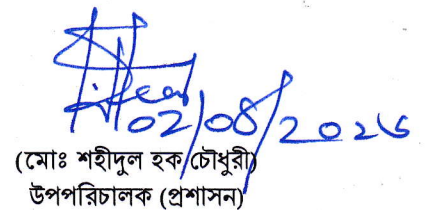 02/08/2026
(মোঃ শহীদুল হক চৌধুরী)
উপপরিচালক (প্রশাসন)